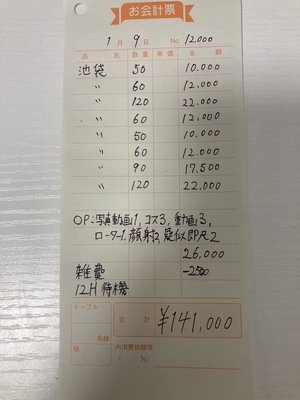 お会計票
1月9日 No. 12000
品名 数量 単価 金額
池袋 50 10.000
〃 60 12.000
〃 120 22.000
〃 60 12.000
〃 50 10.000
〃 60 12.000
〃 90 17.500
〃 120 22.000
OP:写真動画1, コス3, 動画3,
ローター1. 顔射2, 疑似即尺2
26,000
雑費 -2500
12H待機
テーブル
名様
係
合計 ¥141,000
内消費税額等
( %)